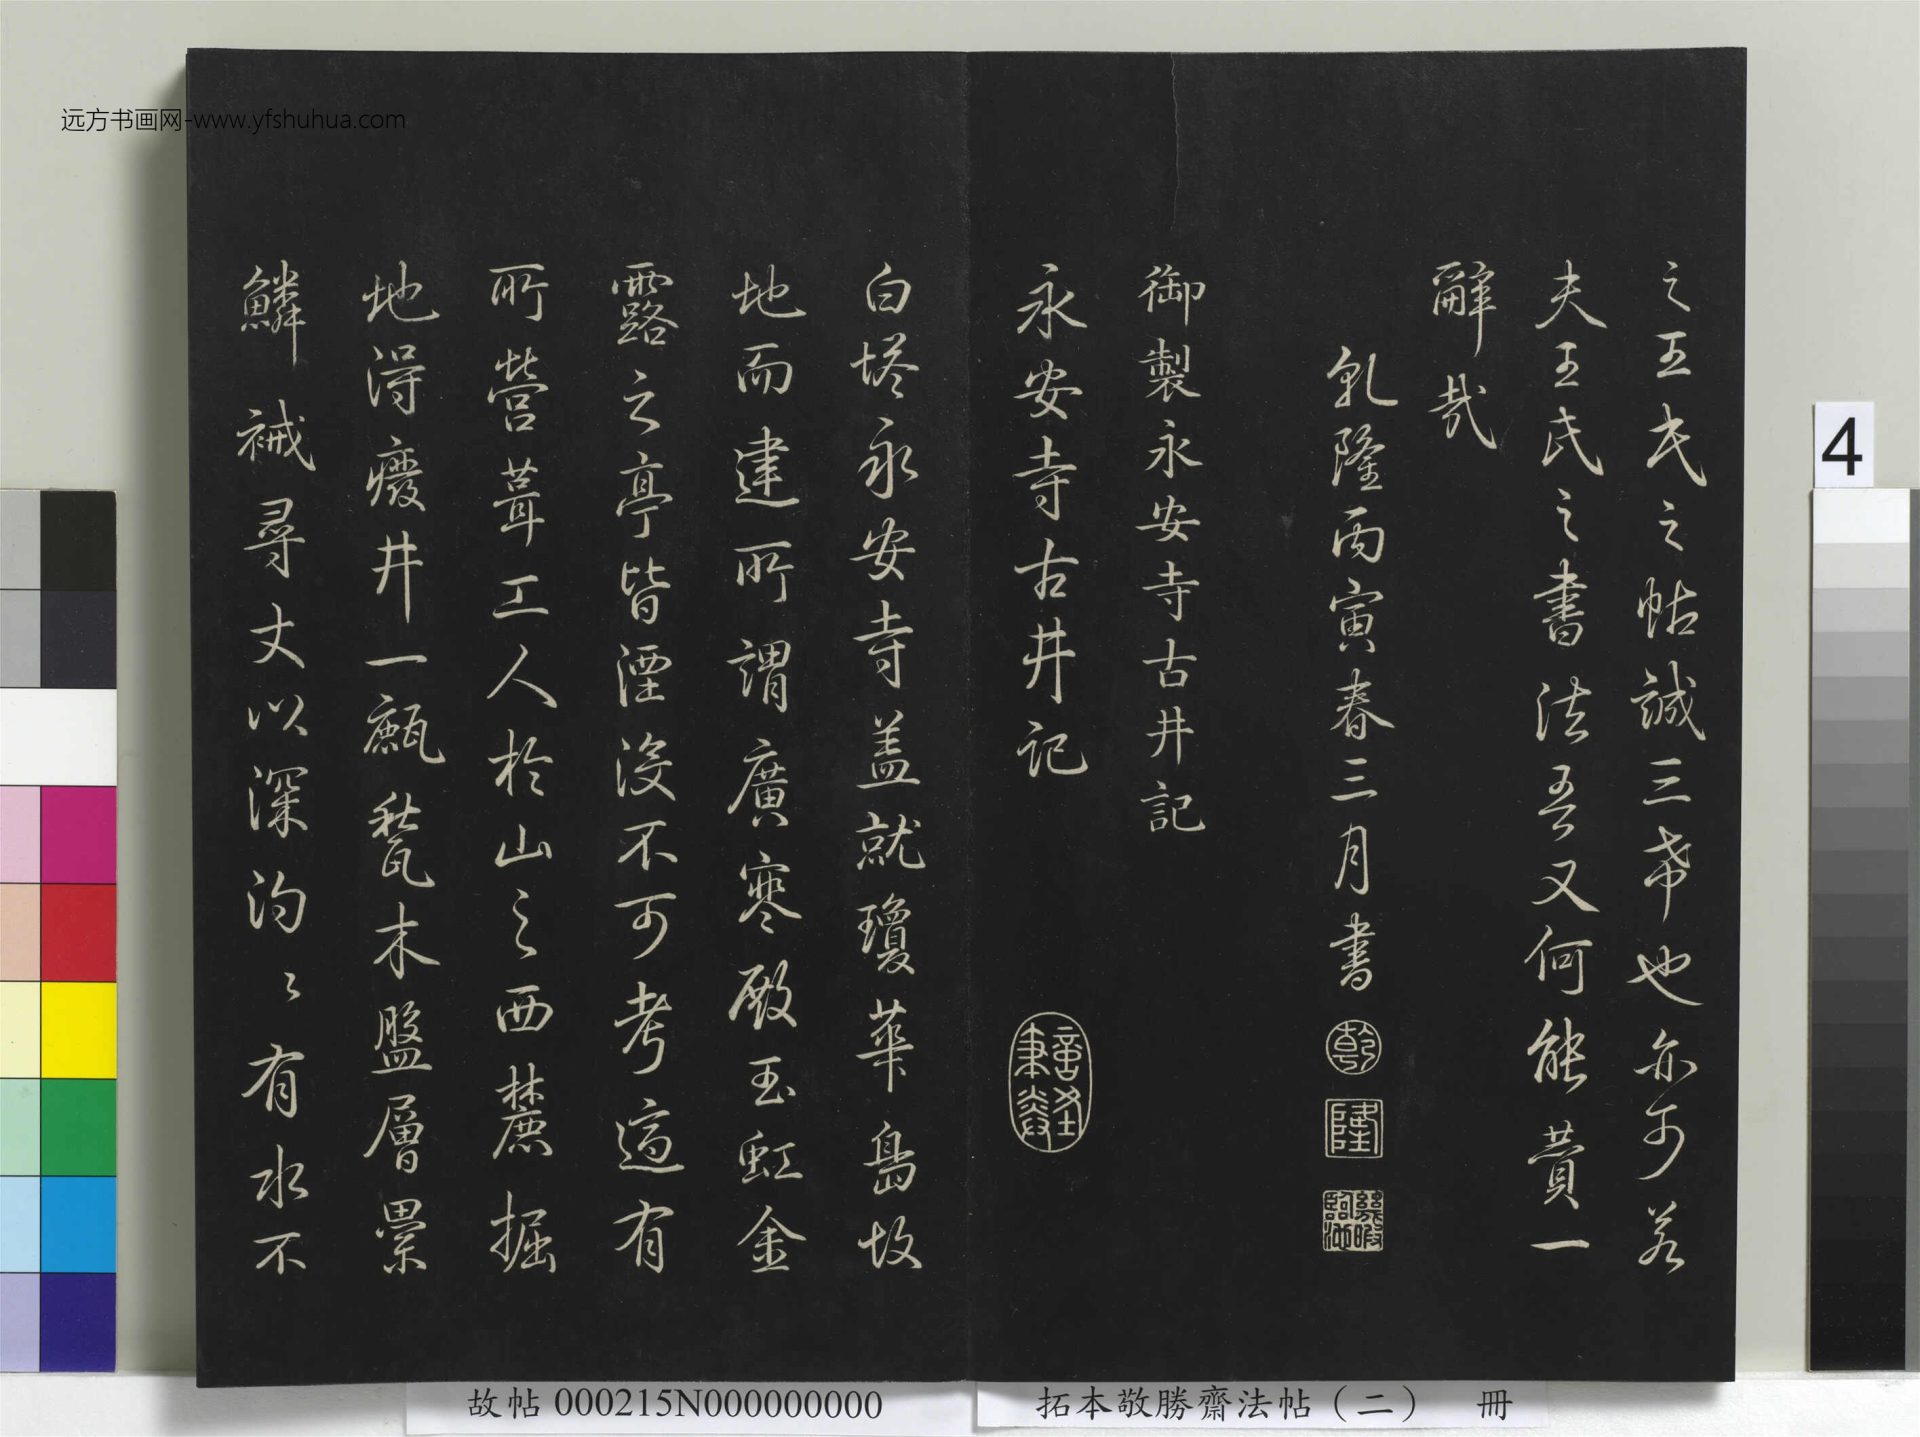 之王氏之帖誠三希也亦可若
夫王氏之書法吾又何能賛一
辭哉
乹隆丙寅春三月書
乾
隆
幾暇臨池
御製永安寺古井記
永安寺古井记
白塔永安寺盖就瓊華島故
地而建所謂廣寒殿玉虹金
露之亭皆湮没不可考適有
所營葺工人於山之西麓掘
地得癈井一甋甃木盤層累
鱗裓尋丈以深沟〻有水不
远方书画网-www.yfshuhua.com
4
故帖 000215N000000000
拓本敬勝齋法帖（二） 冊